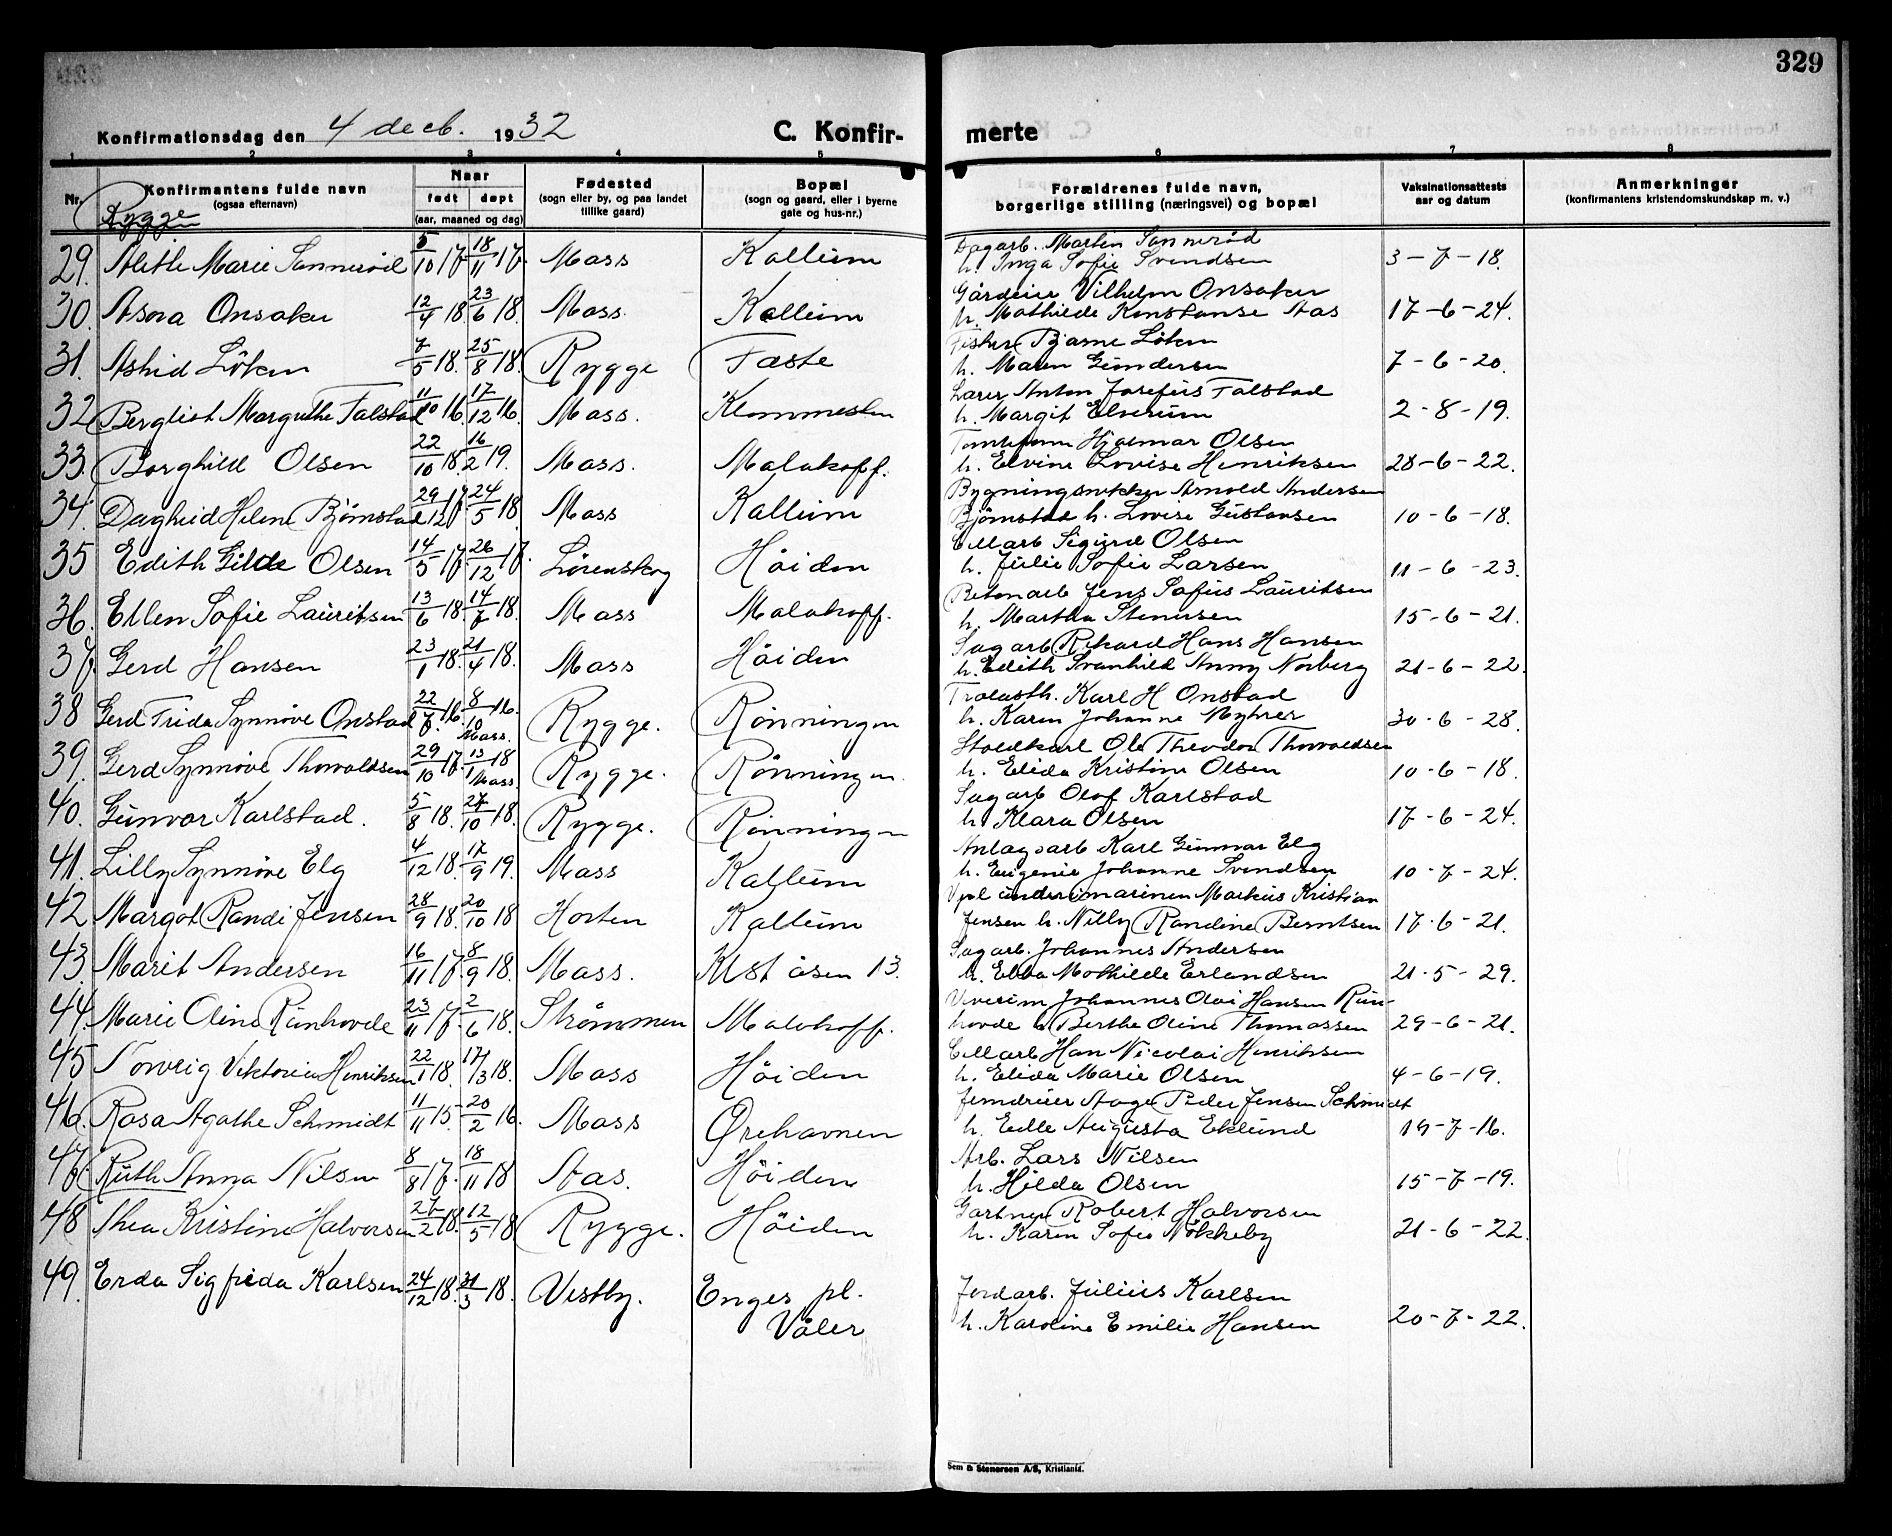 329
Konfirmationsdag den 4 decb. 1932
C. Konfir- merte
1 2 3 4 5 6 7 8
Nr.
Konfirmantens fulde navn
(ogsaa efternavn)
Rygge
Naar
født døpt
(aar, maaned og dag)
Fødested
(sogn eller by, og paa landet
tillike gaard)
Bopæl
(sogn og gaard, eller i byerne
gate og hus-nr.)
Forældrenes fulde navn,
borgerlige stilling (næringsvei) og bopæl
Vaksinationsattests
aar og datum
Anmerkninger
(konfirmantens kristendomskundskap m. v.)
Dagarb. Martin Sannerød
29. Alith Marie Sannerød 5/10 17 18/11 17. Moss Kallum h. Inga Sofie Svendsen 3-7-18.
Gårdeier Vilhelm Onsaker
30. Asora Onsaker 12/4 18. 23/6 18. Moss. Kallum h. Mathilde Konstanse Aas 17-6-24.
Fisker Bjarne Löken
31. Astrid Löken 7/5 18. 25/8 18. Rygge Tæste h. Maren Gundersen 7-6-20.
Lærer Anton Josefus Falstad
32 Bergliot Margrethe Falstad 11/10 16 17/12 16. Moss. Klommesten h. Margit Elverum 2-8-19.
Tomteform Hjalmar Olsen
33. Borghild Olsen 22/10 18. 16/2 19. Moss. Malakoff. h. Elvine Lovise Henriksen 28-6-22.
Bygningssnekker Arnold Andersen
34. Dagheid Helene Bjørnstad 29/12 17 24/5 18. Moss Kallum Bjørnstad h. Lovise Gustavsen 10-6-18.
Cellarb Sigurd Olsen
35 Edith Gilde Olsen 14/5 17 26/12 17. Lørenskog Höiden h. Julie Sofie Larsen 11-6-23.
Betonarb Jens Sofus Lauritsen
36. Ellen Sofie Lauritsen 13/6 18. 14/7 18. Moss Malakoff. h. Martha Stenersen 15-6-21.
Sagarb Rikard Hans Hansen
37 Gerd Hansen 23/1 18. 21/4 18. Moss Höiden h. Edith Svanhild Anny Norberg 21-6-22.
Trælasth. Karl H Onstad
38 Gerd Frida Synnøve Onstad 22/7. 16. 8/10 16. Moss. Rygge. Rönningen h. Karen Johanne Myhrer 30-6-28.
Stoldkarl Ole Theodor Thorvaldsen
39. Gerd Synnøve Thorvaldsen 29/10 17. 13/1 18 Moss Rygge. Rönningen. h. Elida Kristine Olsen 10-6-18.
Sagarb Olof Karlstad
40. Gunvor Karlstad. 5/8 18. 27/10 18. Rygge. Rönningen h. Klara Olsen 17-6-24.
Anlægsarb Karl Gunnar Elg
41. Lilly Synnøve Elg 4/12 18. 17/9 19. Moss Kallum h. Eugenie Johanne Svendsen 10-7-24.
Vpl undermarinen Markus Kristian
42 Margot Randi Jensen 28/9 18. 20/10 18 Horten Kallum Jensen h. Nilly Randine Berntsen 17-6-21.
Sagarb. Johannes Andersen
43. Marit Andersen 16/11 17. 8/9 18. Moss. Klst åsen 13. h. Ebba Mathilde Erlandsen 21-5-29.
Johannes Olai Hansen Run-
44. Marie Oline Runhovde 23/11 17. 2/6 18. Strømmen Malakoff. hovde h Berthe Oline Thomassen 29-6-21.
Cellarb Han Nicolai Henriksen
45 Norvig Viktoria Henriksen 22/1 18. 17/3 18. Moss Höiden h. Elida Marie Olsen 4-6-19.
Jerndreier Aage Peder Jensen Schmidt
46. Rosa Agathe Schmidt 11/11 15. 20/2 16. Moss Ørehavnen h. Edle Augusta Eklund 19-7-16.
Arb. Lars Nilsen
47 Ruth Anna Nilsen 8/8 17. 18/11 18 Aas. Höiden h. Hilda Olsen 15-7-19.
Gartner Robert Halvorsen
48 Thea Kristine Halvorsen 27/2 18. 12/5 18 Rygge. Höiden h. Karen Sofie Nökkeby 21-6-22.
49. Erda Sigfrida Karlsen 24/12 18. 31/3 18. Vestby. Enges pl. Jordarb. Julius Karlsen
Våler h. Karoline Emilie Hansen 20-7-22.
Sem & Stenersen A/S, Kristiania.